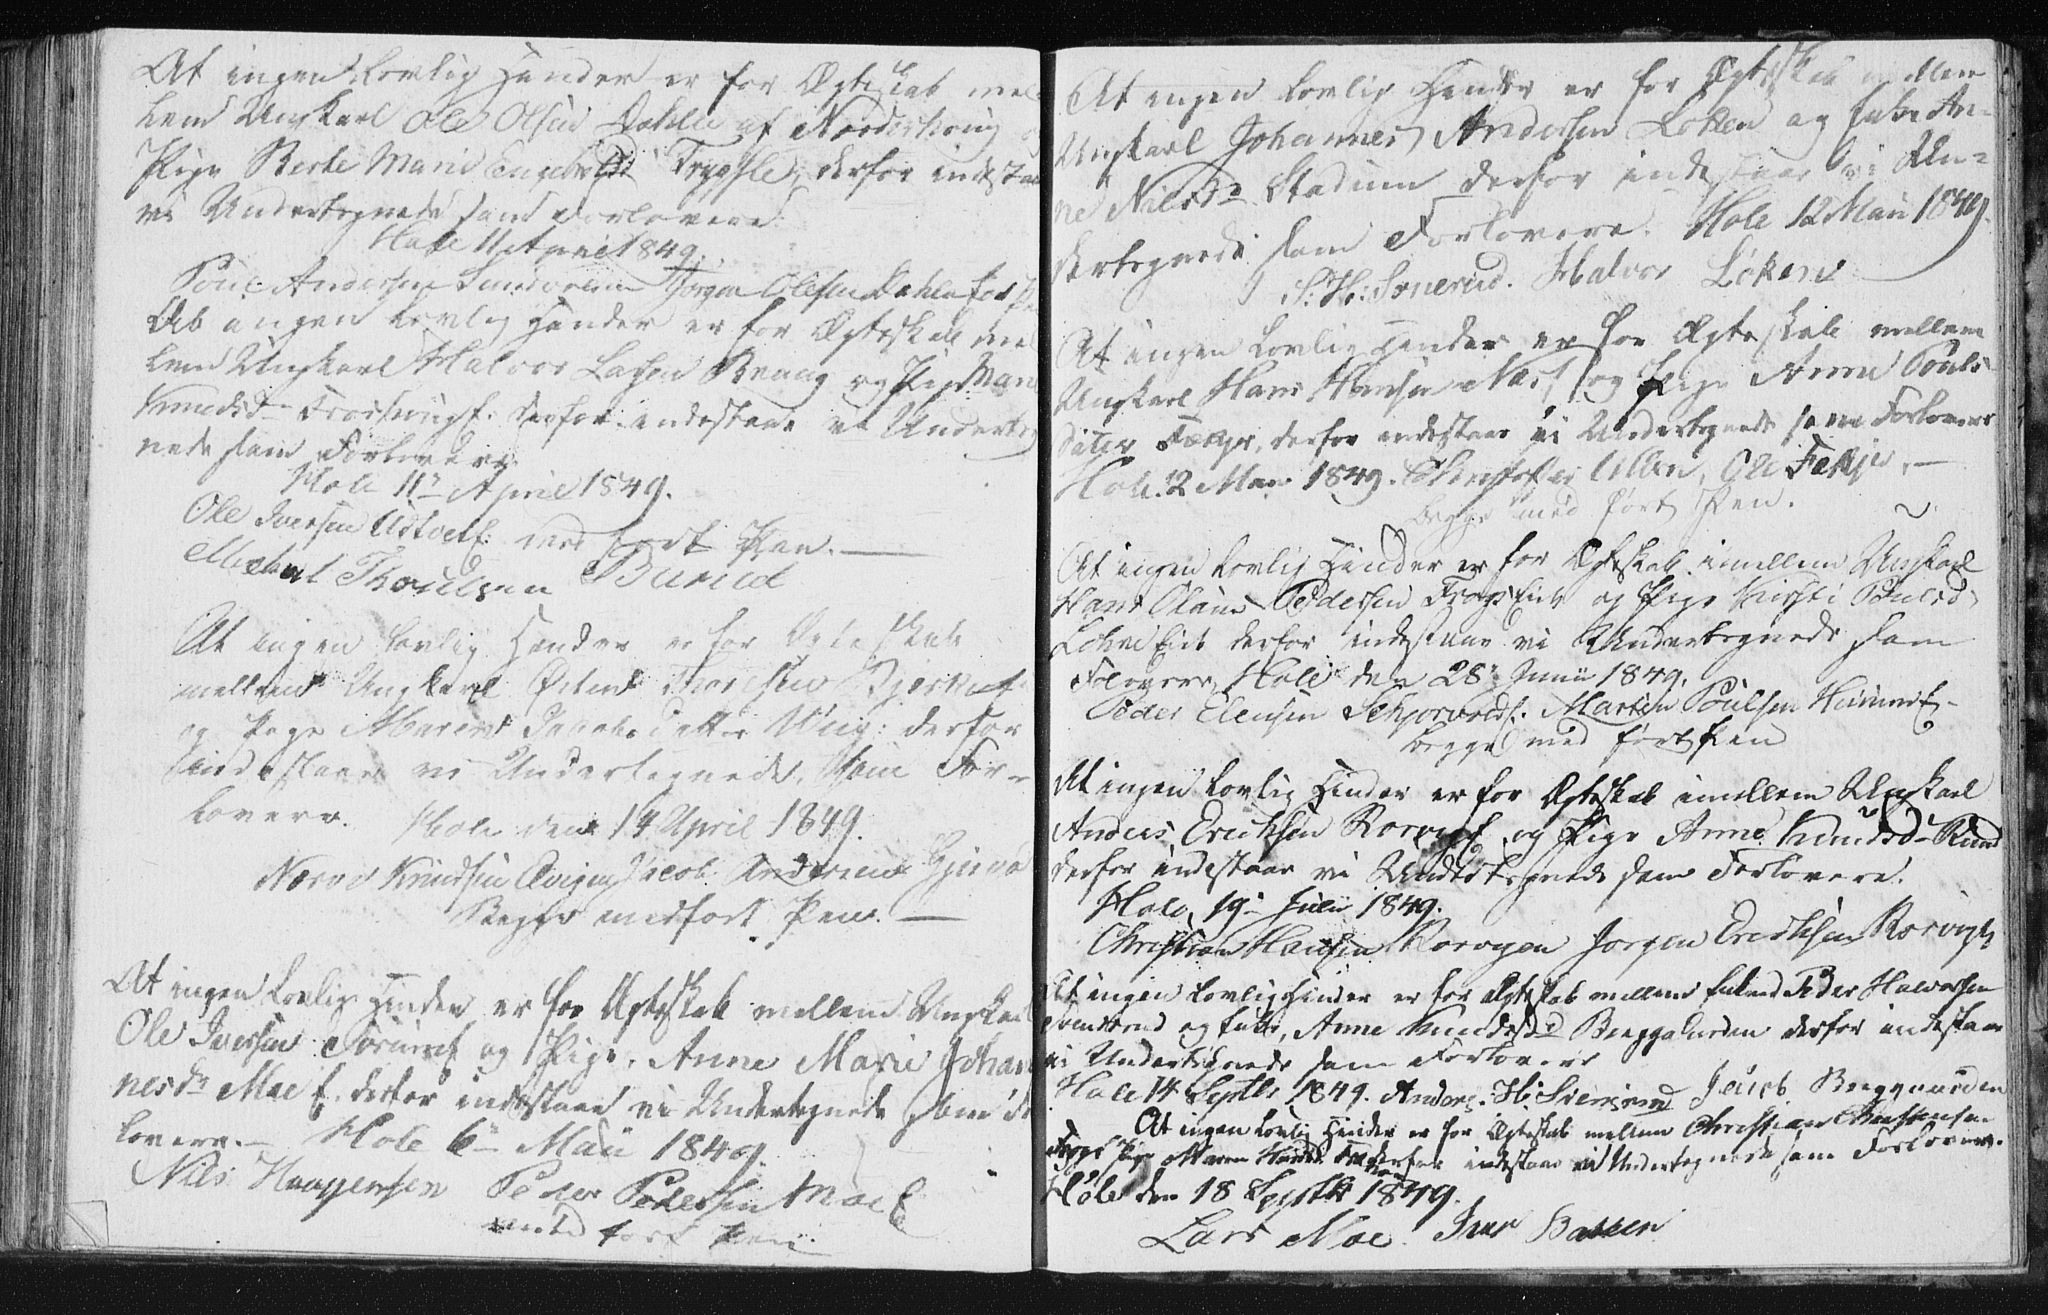 At ingen Lovlig Hinder er for Ægteskab mel
lem Ungkarl Ole Olsen Dahlle af Norderhoug
Pige Berte Marie Engebretsd derfor indestaa
vi Undertegnede som Forlovere.
Hole 11 April 1849.
Poul Andersen Sundvolden Jørgen Olesen Dahlen
At ingen Lovlig Hinder er for Ægteskab mel
lem Ungkarl Halvor Larsen og Pige Mari
Knudsd derfor indestaae vi Underteg
nede som Forlovere
Hole 11 April 1849.
Ole Iversen medført Pen.
Thorilsen Burud
At ingen Lovlig Hinder er for Ægteskab
mellem Ungkarl
og Pige Maren Jacobsdatter Wiig derfor
indestaaer vi Undertegnede, som For-
lovere. Hole den 14 April 1849.
Knudsen Jacob Andersen
Begge med ført Pen.
At ingen Lovlig Hinder er for Ægteskab mellem Ungkarl
Ole Iversen og Pige, Anne Marie Johan
nesdr Moe E. derfor indestaae vi Undertegnede som For
lovere. Hole 6 Maii 1849.
Nils Haagensen Peder Pedersen Moe E
med ført Pen
At ingen Lovlig Hinder er for Ægteskab mellem
Ungkarl Johannes Andersen Løken og Enke An-
ne Nilsdr Stadum derfor indestaae vi Un-
dertegnede som Forlovere. Hole 12 Maii 1849.
S: H: Sønerud. Halvor Løken
At ingen Lovlig Hinder er for Ægteskab mellem
Ungkarl Hans Hansen Næs, og Pige Anne Pouls
dater Fækje, derfor indestaae vi Undertegnede som Forlovere
Hole. 12 Maii 1849. Christopher Ullern, Ole Fækje.
begge med ført Pen.
At ingen Lovlig Hinder er for Ægteskab imellem Ungkarl
Hans Olaus Pedersen og Pige Kirsti Poulsd
derfor indestaae vi Undertegnede som
Forlovere, Hole den 28 Junii 1849.
Peder Elensen Martin Poulsen
begge med ført Pen
At ingen Lovlig Hinder er for Ægteskab imellem Ungkarl
Anders Ericksen Rørvig E, og Pige Anne Knudsd
derfor indestaae vi Undertegnede som Forlovere.
Hole, 19 Julii 1849.
Christian Hansen Rørvigen Jørgen Ericksen Rørvig
At ingen Lovlig Hinder er for Ægteskab mellem Enkemd Peder Halvorsen
og Enke, Anne Knudsdr Bryggaarden derfor indestaae
vi Undertegnede som Forlovere
Hole 14 Septbr 1849. Anders. H. Jacob Bryggaarden
At ingen Lovlig Hinder er for Ægteskab mellem Christian Christensen
Pige Maren Hansd derfor indestaae vi Undertegnede som Forlovere.
Hole den 18 Septbr 1849.
Lars Moe. Iver Bakken